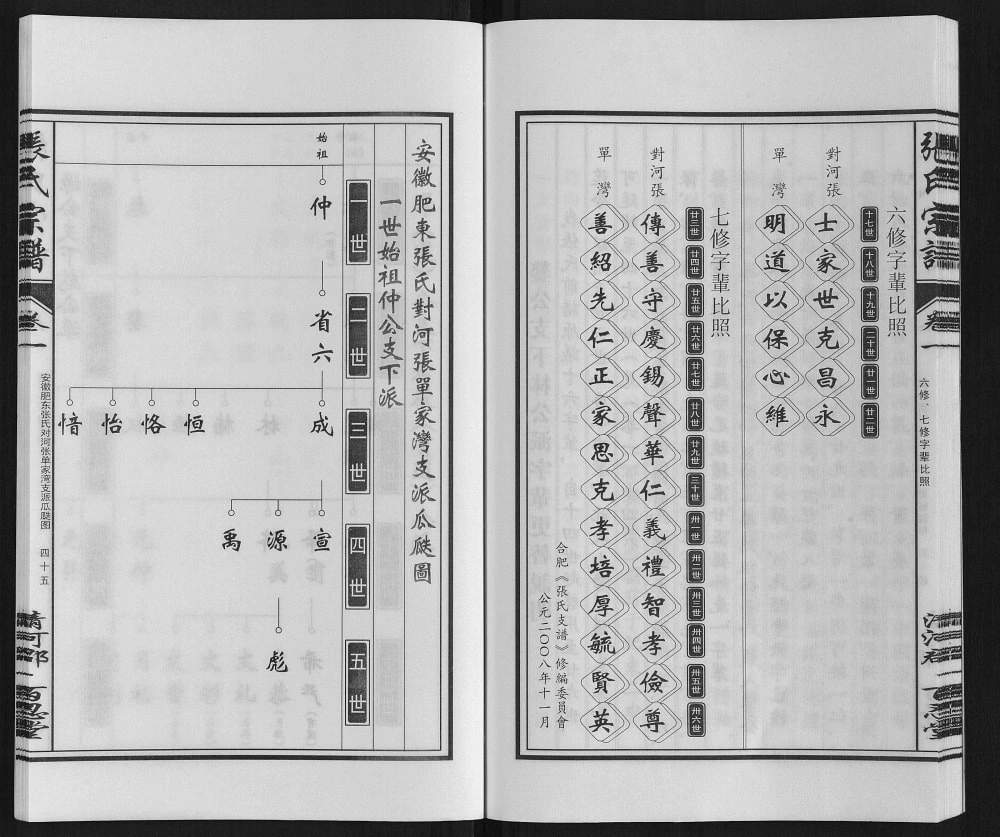 六修字輩比照
十七世 十八世 十九世 二十世 廿一世 廿二世
對河張 士家世克昌永
單灣 明道以保心維
七修字輩比照
廿三世 廿四世 廿五世 廿六世 廿七世 廿八世 廿九世 三十世 卅一世 卅二世 卅三世 卅四世 卅五世 卅六世
對河張 傳善守慶錫聲華仁義禮智孝儉尊
單灣 善紹先仁正家思克孝培厚毓賢英
合肥《張氏支譜》修編委員會
公元二〇〇八年十一月
張氏宗譜
卷一
六修、七修字輩比照
清河郡
百忍堂
安徽肥東張氏對河張單家灣支派瓜瓞圖
一世始祖仲公支下派
一世
二世
三世
四世
五世
始祖
仲
省六
成
恒
恪
怡
愔
宣
源
禹
彪
張氏宗譜
卷一
安徽肥东张氏对河张单家湾支派瓜瓞图
四十五
清河郡
百忍堂